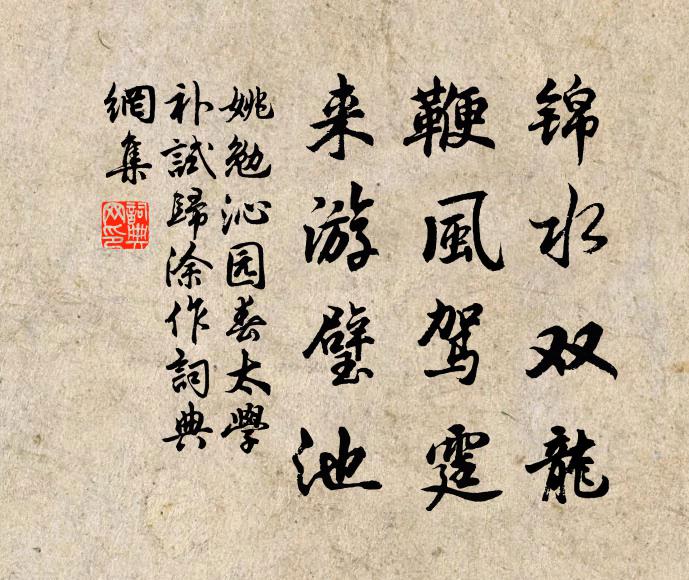 锦水双龍
鞭風駕霆
来游璧池
姚勉沁园春太学
补試歸涂作詞典
網集
詞典网印